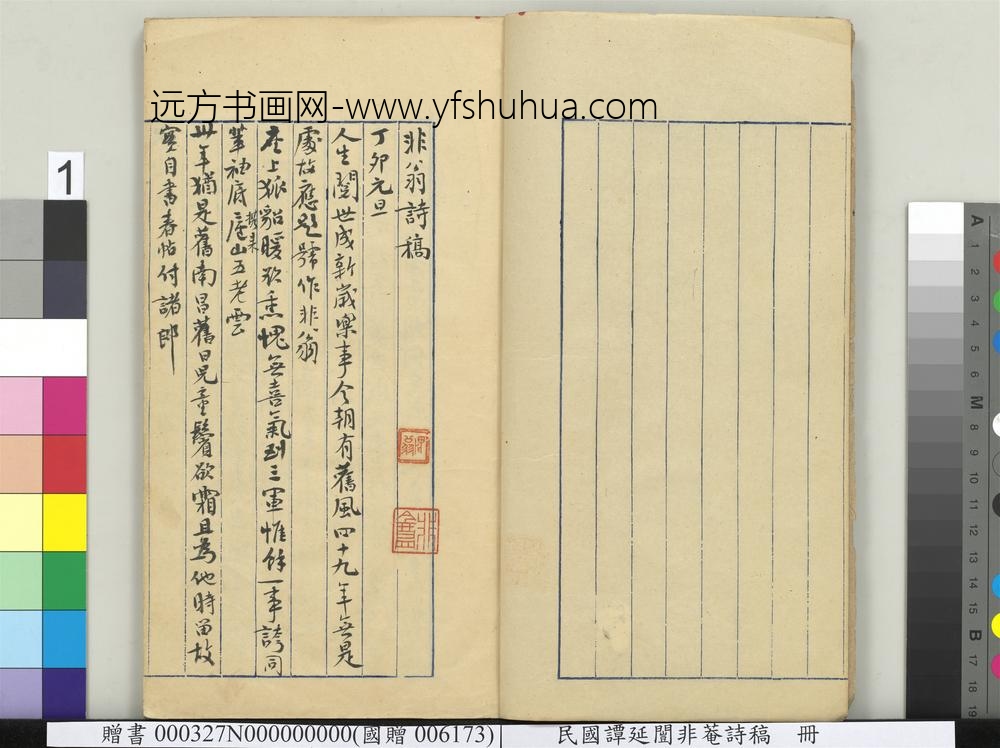 远方书画网-www.yfshuhua.com
非翁詩稿
丁卯元旦
人生閱世成新歲樂事今朝有舊風四十九年無是
處故應題號作非翁
座上狐貂暖欲熏愧無喜氣到三軍惟餘一事誇同
輩袖底廬山五老雲
攜來
卅年猶是舊南昌舊日兒童鬢欲霜且為他時留故
實自書春帖付諸郎
1
A
1
2
3
4
5
6
M
8
9
10
11
12
13
14
15
B
17
18
19
贈書 000327N000000000(國贈 006173)
民國譚延闓非菴詩稿 冊